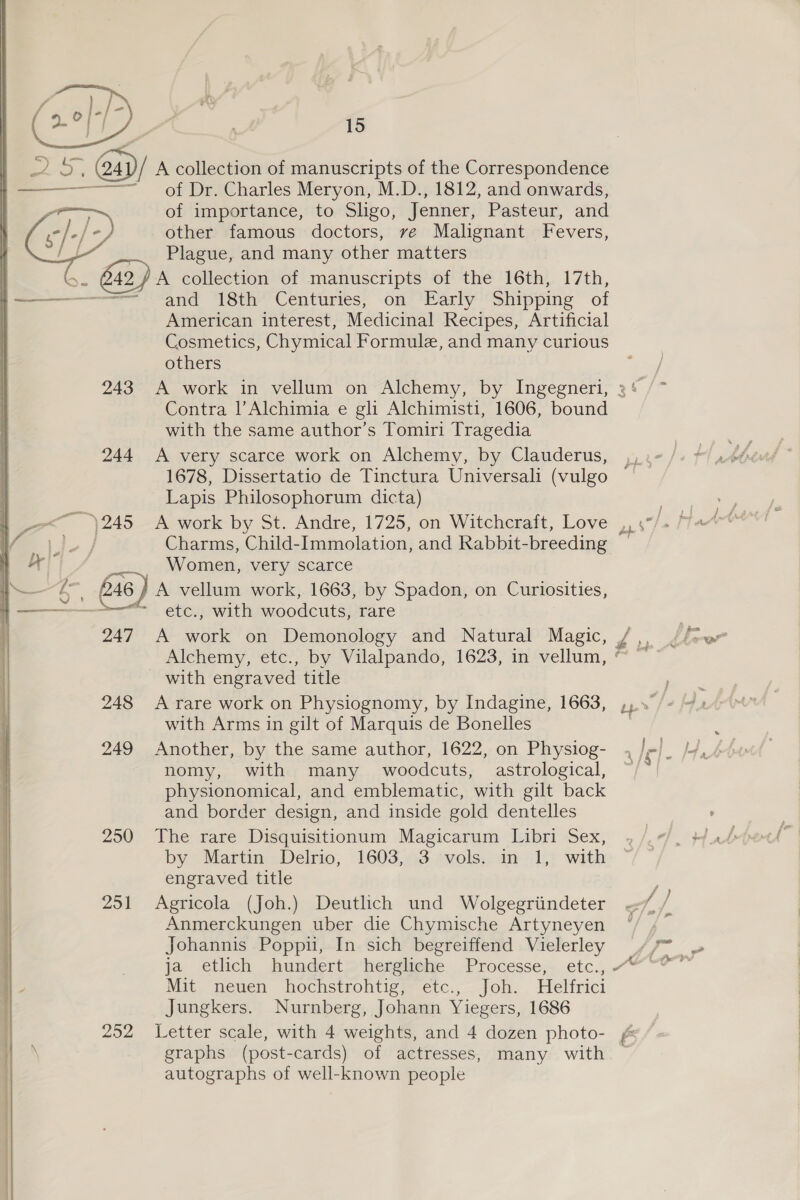 15
241 A collection of manuscripts of the Correspondence
of Dr. Charles Meryon, M.D., 1812, and onwards,
of importance, to Sligo, Jenner, Pasteur, and
other famous doctors, re Malignant Fevers,
Plague, and many other matters
242 A collection of manuscripts of the 16th, 17th,
and 18th Centuries, on Early Shipping of
American interest, Medicinal Recipes, Artificial
Cosmetics, Chymical Formulæ, and many curious
others
243 A work in vellum on Alchemy, by Ingegneri,
Contra l'Alchimia e gli Alchimisti, 1606, bound
with the same author's Tomiri Tragedia
244 A very scarce work on Alchemy, by Clauderus,
1678, Dissertatio de Tinctura Universali (vulgo
Lapis Philosophorum dicta)
245 A work by St. Andre, 1725, on Witchcraft, Love
Charms, Child-Immolation, and Rabbit-breeding
Women, very scarce
246 A vellum work, 1663, by Spadon, on Curiosities,
etc., with woodcuts, rare
247 A work on Demonology and Natural Magic,
Alchemy, etc., by Vilalpando, 1623, in vellum,
with engraved title
248 A rare work on Physiognomy, by Indagine, 1663,
with Arms in gilt of Marquis de Bonelles
249 Another, by the same author, 1622, on Physiog-
nomy, with many woodcuts, astrological,
physionomical, and emblematic, with gilt back
and border design, and inside gold dentelles
250 The rare Disquisitionum Magicarum Libri Sex,
by Martin Delrio, 1603, 3 vols. in 1, with
engraved title
251 Agricola (Joh.) Deutlich und Wolgegründeter
Anmerckungen uber die Chymische Artyneyen
Johannis Poppii, In sich begreiffend Vielerley
ja etlich hundert hergliche Processe, etc.,
Mit neuen hochstrohtig, etc., Joh. Helfrici
Jungkers. Nurnberg, Johann Yiegers, 1686
252 Letter scale, with 4 weights, and 4 dozen photo-
graphs (post-cards) of actresses, many with
autographs of well-known people